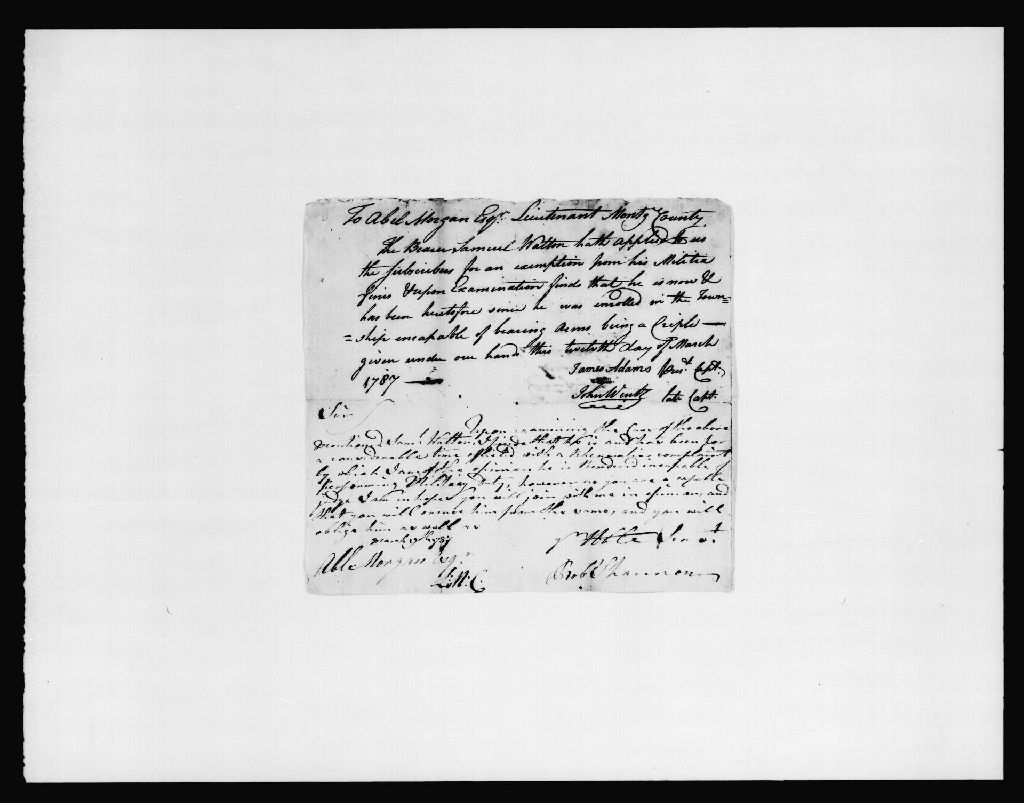 To Abel Morgan Esqr. Lieutenant Montg County
The Bearer Samuel Walton hath applied to us
the subscribers for an exemption from his Militia
fines & upon Examination finds that he is now &
has been heretofore since he was enrolled in the Town=
=ship incapable of bearing Arms being a Criple —
given under our hands this twelvth day of March
1787 —
James Adams Prest. Capt.
John Wentz late Capt.
Sir
Upon examining the Case of the above
mentioned Saml. Walton, I finde that he is and has been for
a considerable time afflicted with a Rheumatic complaint
by which I am of the opinion he is Rendred incapable of
performing Military duty, however as you are a capable
judge I am in hopes you will join with me in opinion, and
that you will excuse him from the same, and you will
oblige him as well as
March 17th 1787
yr Hble Servt
Able Morgan Esqr.
Robt. Shannon
Lt. M: C.